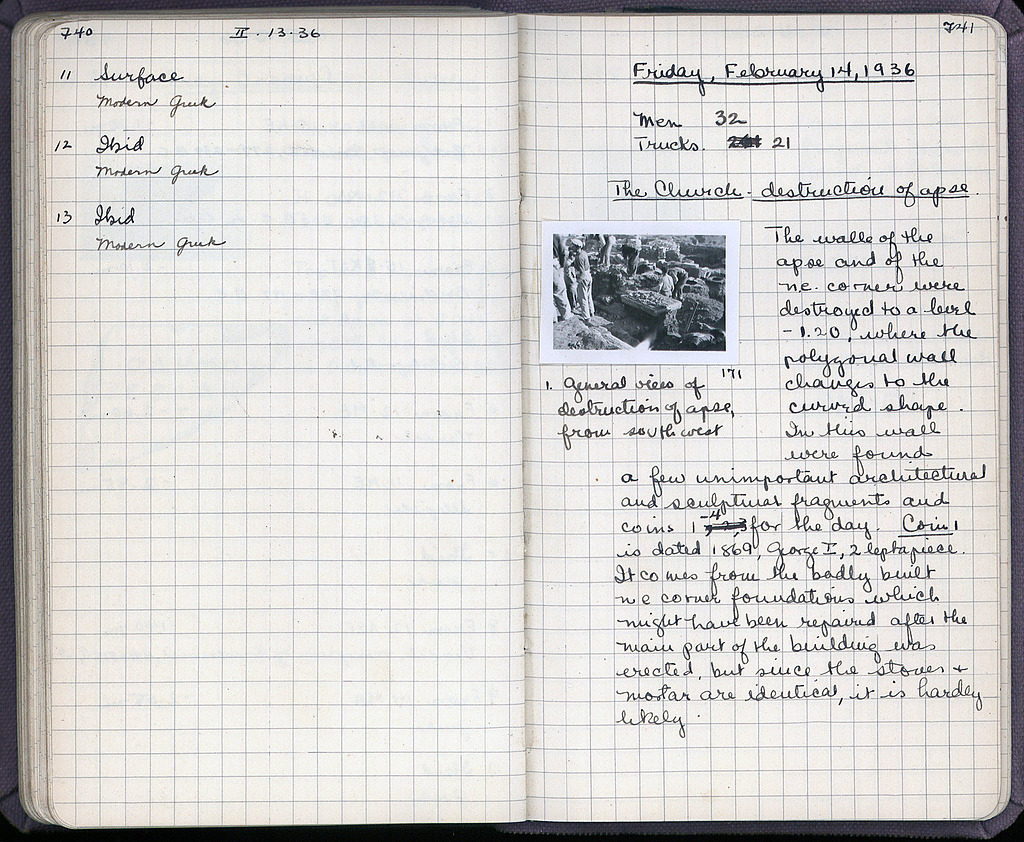 740
II. 13. 36
11 Surface
Modern Greek
12 Ibid
Modern Greek
13 Ibid
Modern Greek
741
Friday, February 14, 1936
Men 32
Trucks. 21
The Church - destruction of apse.
The walls of the
apse and of the
n.e. corner were
destroyed to a level
- 1.20, where the
polygonal wall
changes to the
curved shape.
In this wall
were found
1. General view of 171
destruction of apse,
from southwest
a few unimportant architectural
and sculptural fragments and
coins 1-4 for the day. Coin 1
is dated 1869, George I, 2 lepta piece.
It comes from the badly built
n e corner foundations which
might have been repaired after the
main part of the building was
erected, but since the stones +
mortar are identical, it is hardly
likely.